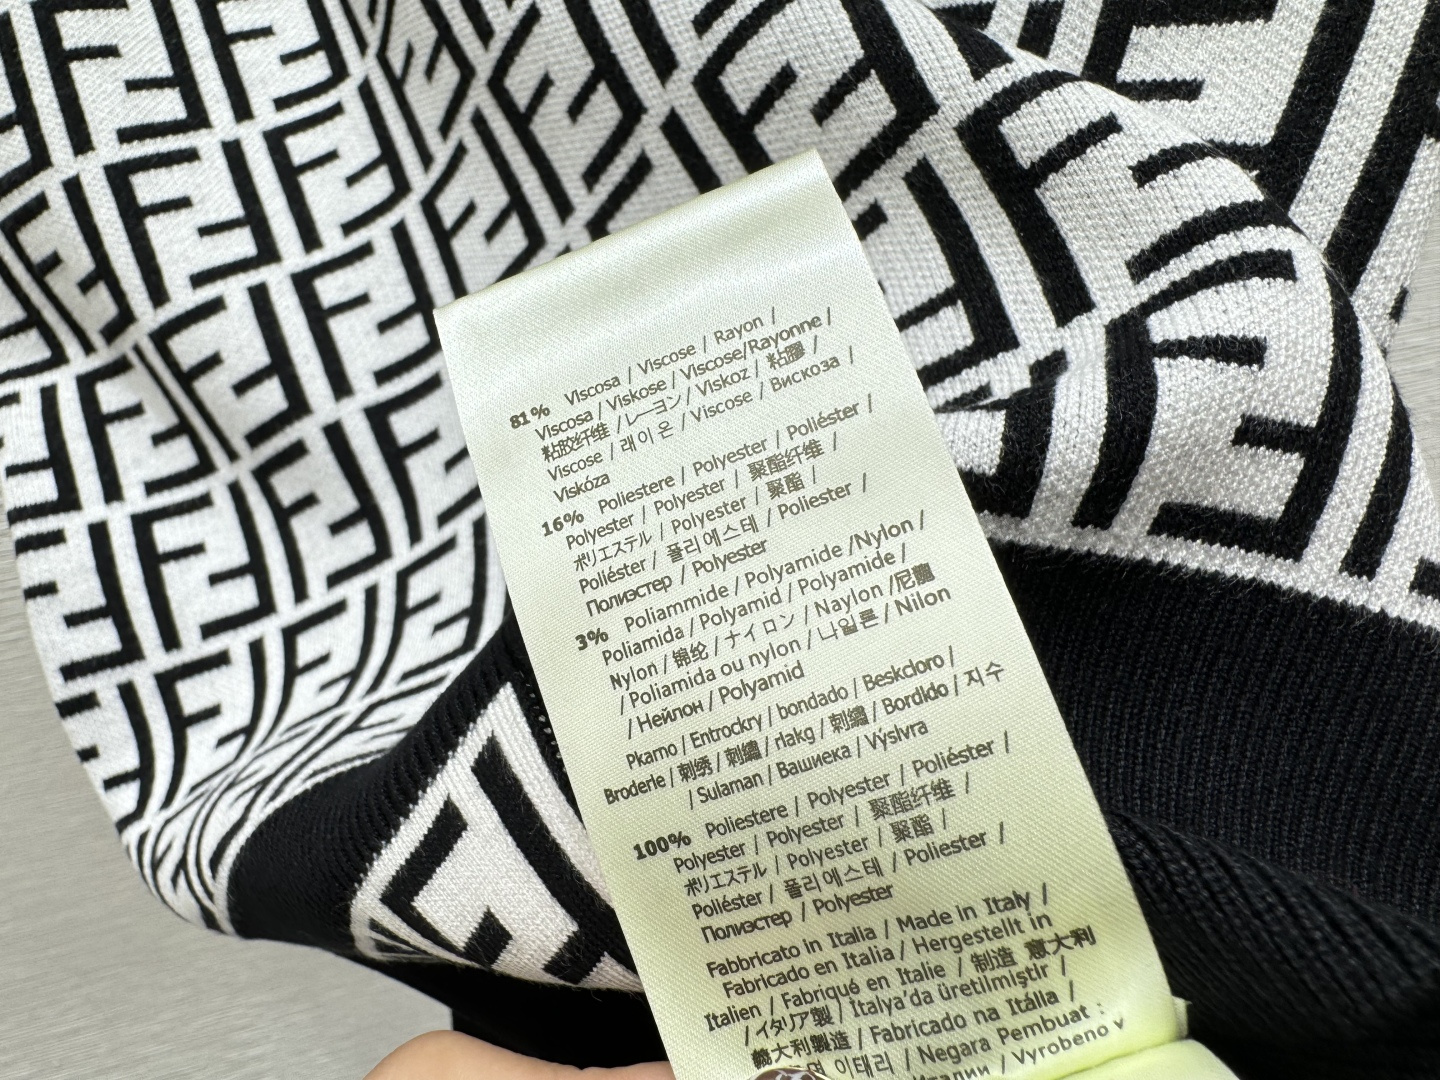 81% Viscosa / Viscose / Rayon /
Viscosa / Viskose / Viscose/Rayonne /
粘胶纤维 / レーヨン / Viskoz / 粘膠 /
Viscose / 레이온 / Viscose / Вискоза /
Viskóza
16% Poliestere / Polyester / Poliéster /
Polyester / Polyester / 聚酯纤维 /
ポリエステル / Polyester / 聚酯 /
Poliéster / 폴리에스테 / Poliester /
Полиэстер / Polyester
3% Poliammide / Polyamide /Nylon /
Poliamida / Polyamid / Polyamide /
Nylon / 锦纶 / ナイロン / Naylon /尼龍
/ Poliamida ou nylon / 나일론 / Nilon
/ Нейлон / Polyamid
Pkamo / Entrockry / bondado / Beskcloro /
Broderle / 刺绣 / 刺繡 / rlakg / 刺繡 / Bordldo / 지수
/ Sulaman / Вашиека / Výslvra
100% Poliestere / Polyester / Poliéster /
Polyester / Polyester / 聚酯纤维 /
ポリエステル / Polyester / 聚酯 /
Poliéster / 폴리에스테 / Poliester /
Полиэстер / Polyester
Fabbricato in Italia / Made in Italy /
Fabricado en Italia / Hergestellt in
Italien / Fabriqué en Italie / 制造 意大利
/ イタリア製 / Italya'da üretilmiştir /
義大利製造 / Fabricado na Itália /
이태리 / Negara Pembuat :
Италии / Vyrobeno v